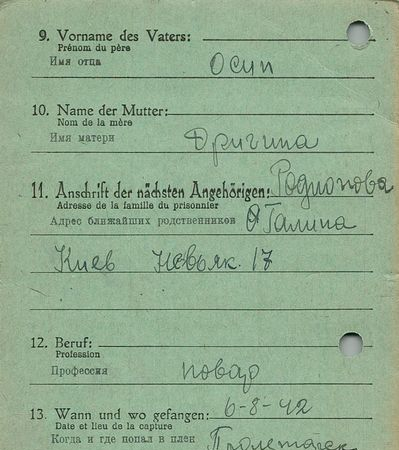 9. Vorname des Vaters:
Prénom du père
Имя отца
Осип
10. Name der Mutter:
Nom de la mère
Имя матери
11. Anschrift der nächsten Angehörigen: Родионова
Adresse de la famille du prisonnier
Адрес ближайших родственников Галина
Киев 17
12. Beruf:
Profession
Профессия
повар
13. Wann und wo gefangen: 6-8-42
Date et lieu de la capture
Когда и где попал в плен